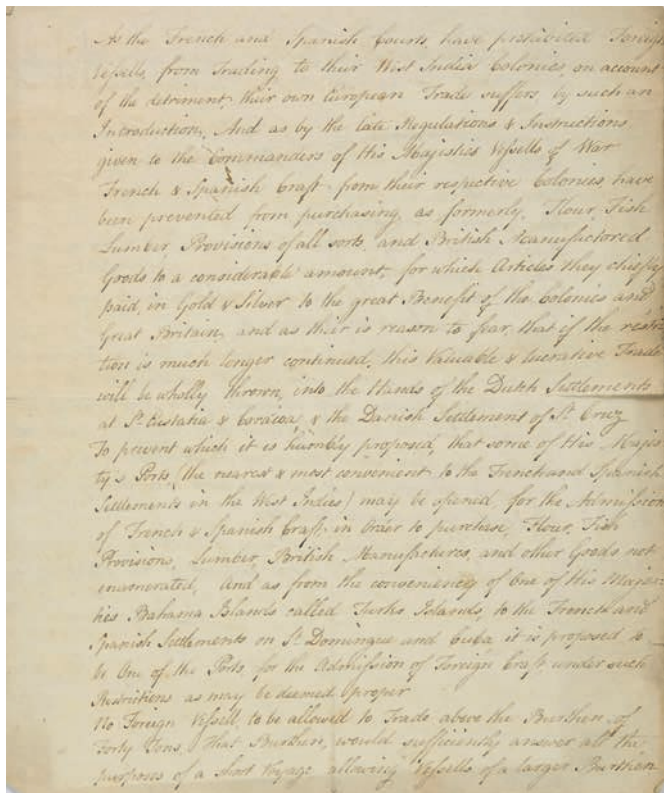 As the French and Spanish Courts, have prohibited Foreign
Vessells, from Trading to their West India Colonies, on account
of the detriment, their own European Trade suffers, by such an
Introduction, And as by the late Regulations & Instructions
given to the Commanders of His Majesties Vessells of War
French & Spanish Craft from their respective Colonies, have
been prevented from purchasing, as formerly, Flour, Fish
Lumber Provisions of all sorts, and British Manufactored
Goods to a considerable amount, for which Articles they chiefly
paid, in Gold & Silver to the great Benefit of the Colonies and
Great Britain, and as their is reason to fear, that if the restric
tion is much longer continued, this Valuable & lucrative Trade
will be wholly thrown, into the Hands of the Dutch Settlements
at St Eustatia & Coracoa, & the Danish Settlement of St Cruz
To prevent which it is humbly proposed, that some of His Majes
ty's Ports (the nearest & most convenient to the French and Spanish
Settlements in the West Indies) may be opened, for the Admission
of French & Spanish Craft, in order to purchase, Flour, Fish
Provisions, Lumber, British Manufactures, and other Goods not
enumerated, And as from the conveniency of One of His Majes
ties Bahama Islands called Turks Islands, to the French and
Spanish Settlements on St Domingue and Cuba it is proposed to
be One of the Ports, for the Admission of Foreign Craft under such
Restrictions as may be deemed proper
No Foreign Vessell to be allowed to Trade above the Burthen of
Forty Tons, That Burthen, would sufficiently answer all the
purposes of a short Voyage allowing Vessells of a larger Burthen